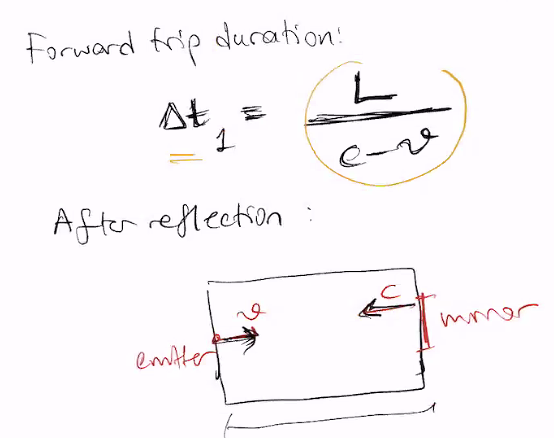 Forward trip duration:
Δt₁ = L / c-v
After reflection :
v
c
mirror
emitter